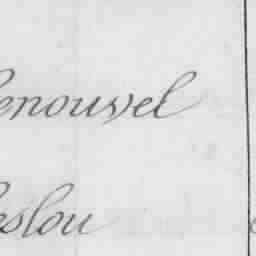 enouvel
eslou